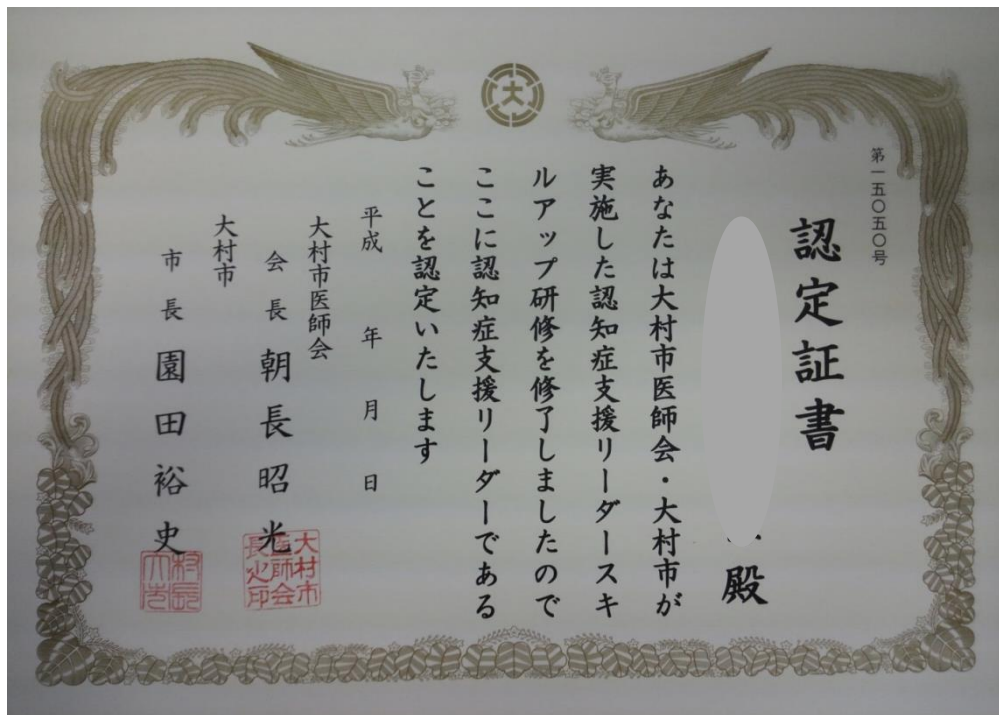 大
第一五〇五〇号
認定証書
殿
あなたは大村市医師会・大村市が
実施した認知症支援リーダースキ
ルアップ研修を修了しましたので
ここに認知症支援リーダーである
ことを認定いたします
平成　年　月　日
大村市医師会
会長 朝長昭光
大村市医師会長之印
大村市
市長 園田裕史